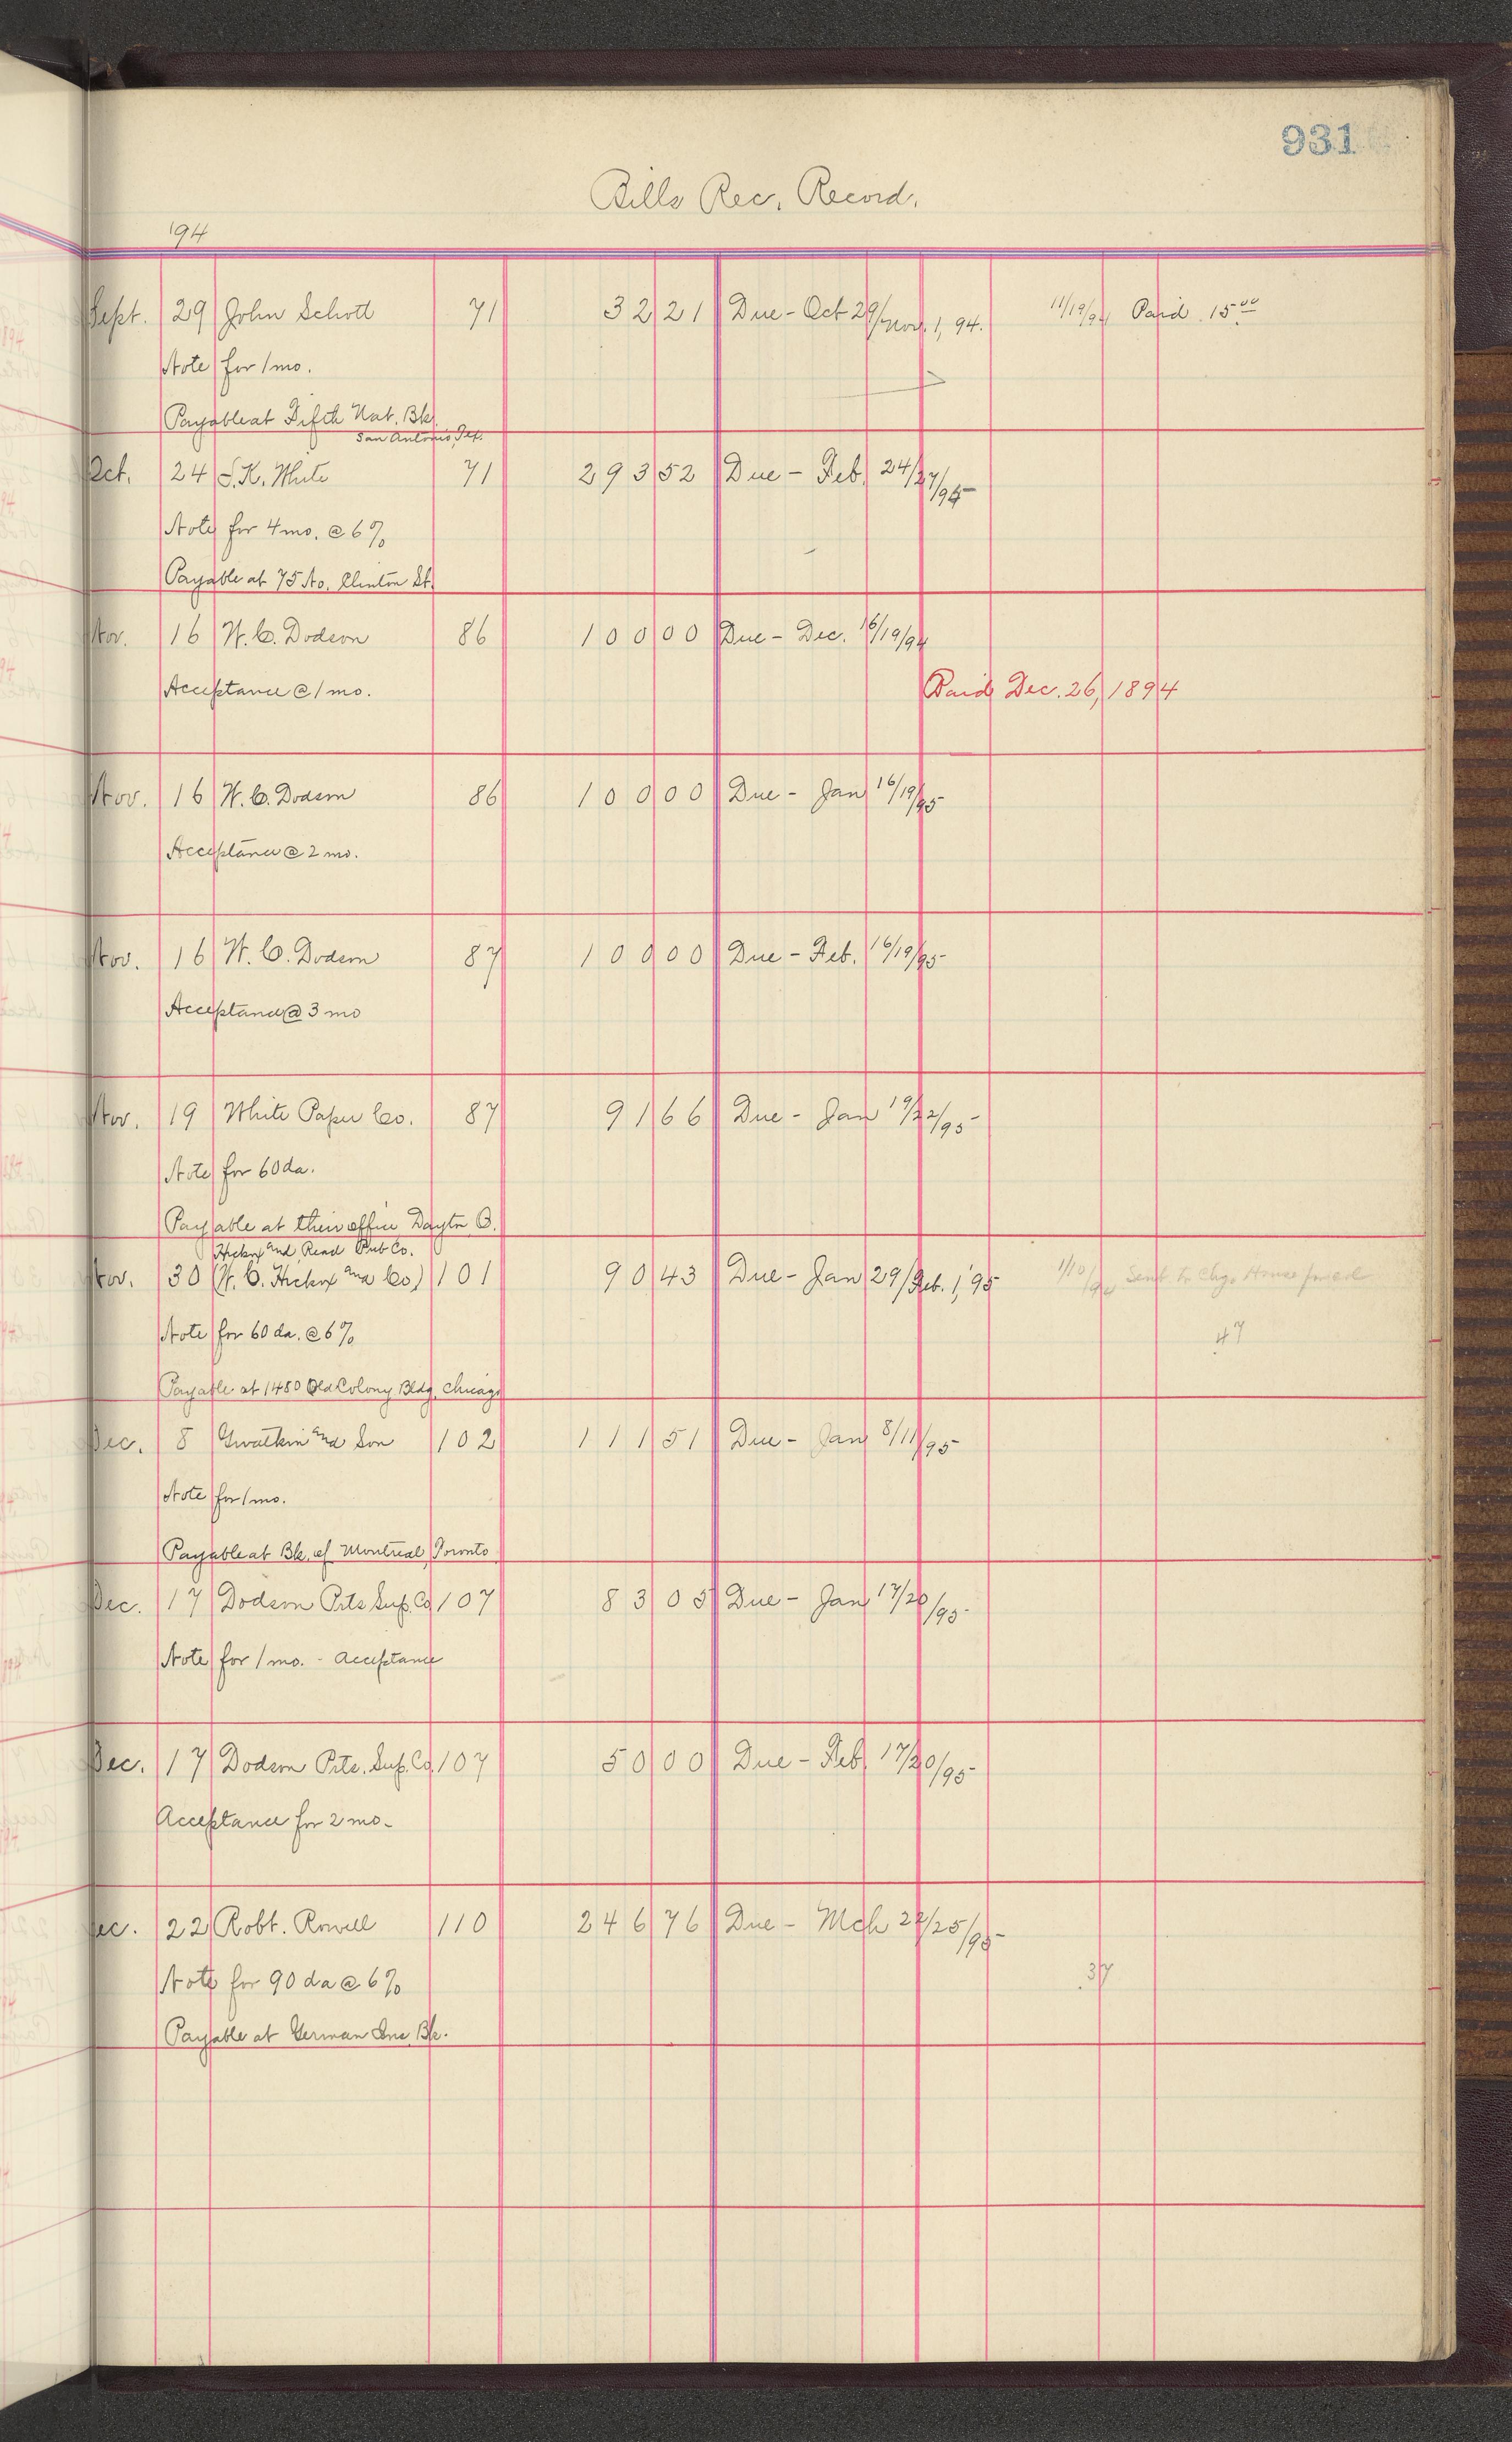 931
Bills Rec. Record.
'94
Sept. 29 John Schott 71 32 21 Due - Oct 29/Nov. 1, 94. 11/19/94 Paid 15 00
Note for 1 mo.
Payable at Fifth Nat. Bk.
San Antonio, Tex.
Oct. 24 S. K. White 71 293 52 Due - Feb. 24/27/95
Note for 4 mo. @ 6%
Payable at 75 No. Clinton St.
Nov. 16 W. C. Dodson 86 100 00 Due - Dec. 16/19/94
Acceptance @ 1 mo. Paid Dec. 26, 1894
Nov. 16 W. C. Dodson 86 100 00 Due - Jan 16/19/95
Acceptance @ 2 mo.
Nov. 16 W. C. Dodson 87 100 00 Due - Feb. 16/19/95
Acceptance @ 3 mo
Nov. 19 White Paper Co. 87 91 66 Due - Jan 19/22/95
Note for 60 da.
Payable at their office Dayton O.
Hickox and Read Pub Co.
Nov. 30 (W. C. Hickox and Co) 101 90 43 Due - Jan 29/Feb. 1, '95 1/10/95 Sent to Chgo House
Note for 60 da. @ 6% 47
Payable at 1480 Old Colony Bldg. Chicago
Dec. 8 Gwatkin and Son 102 111 51 Due - Jan 8/11/95
Note for 1 mo.
Payable at Bk. of Montreal, Toronto
Dec. 17 Dodson Prts Sup. Co 107 83 05 Due - Jan 17/20/95
Note for 1 mo. - Acceptance
Dec. 17 Dodson Prts. Sup. Co. 107 50 00 Due - Feb 17/20/95
Acceptance for 2 mo.
Dec. 22 Robt. Rowell 110 246 76 Due - Mch 22/25/95
Note for 90 da @ 6% 37
Payable at German Ins. Bk.